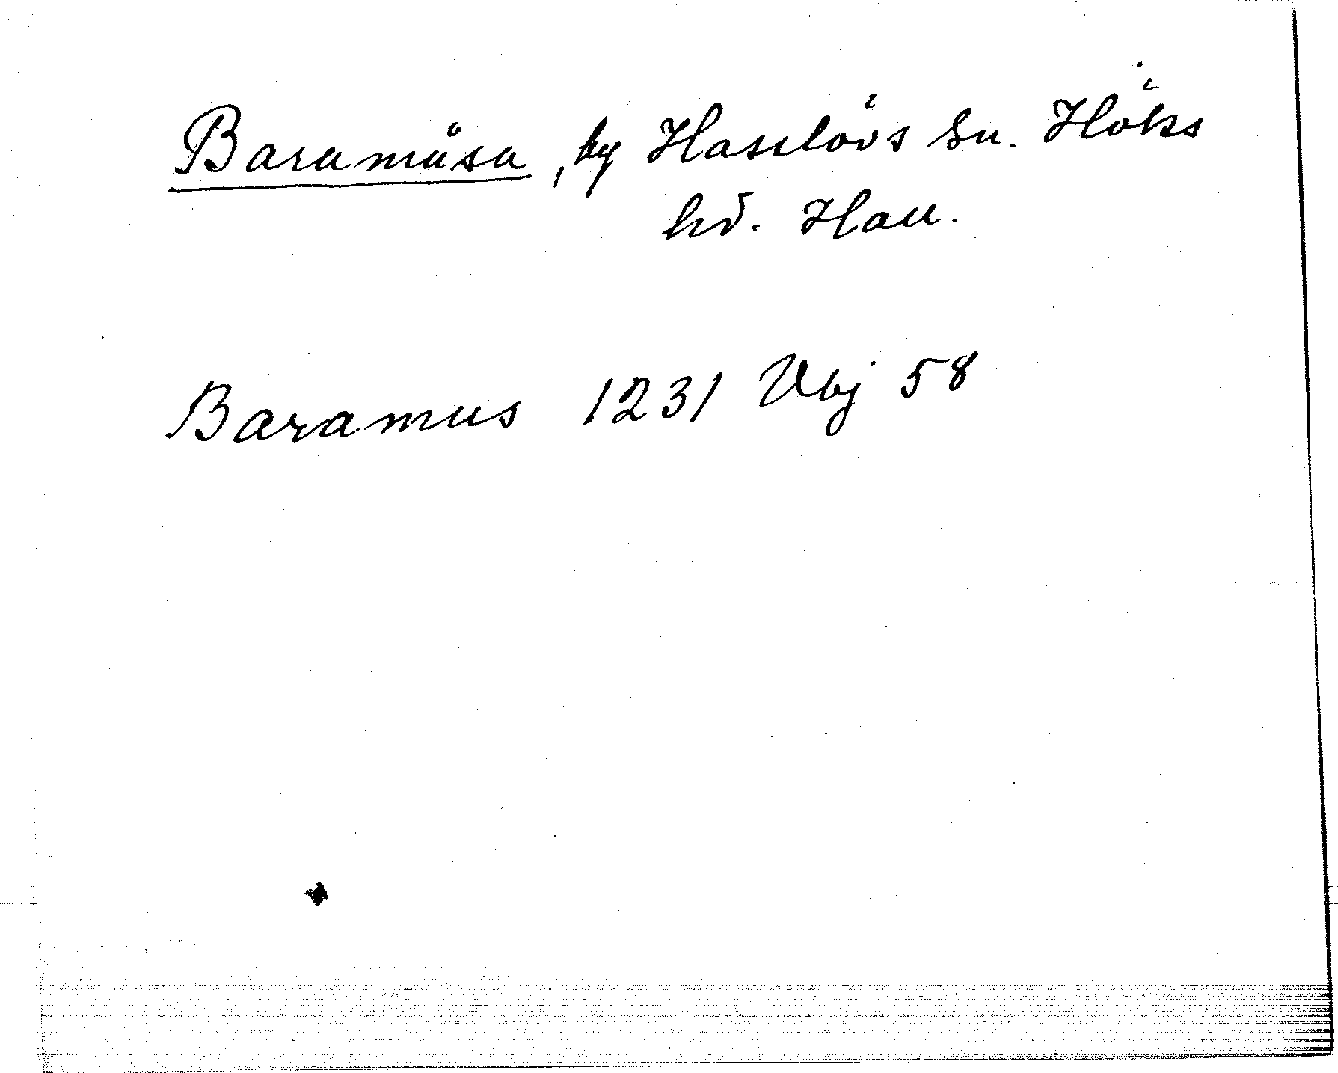 Baramåsa, by Hasslövs sn. Höks
hd. Hall.
Baramus 1231 Vbj 58